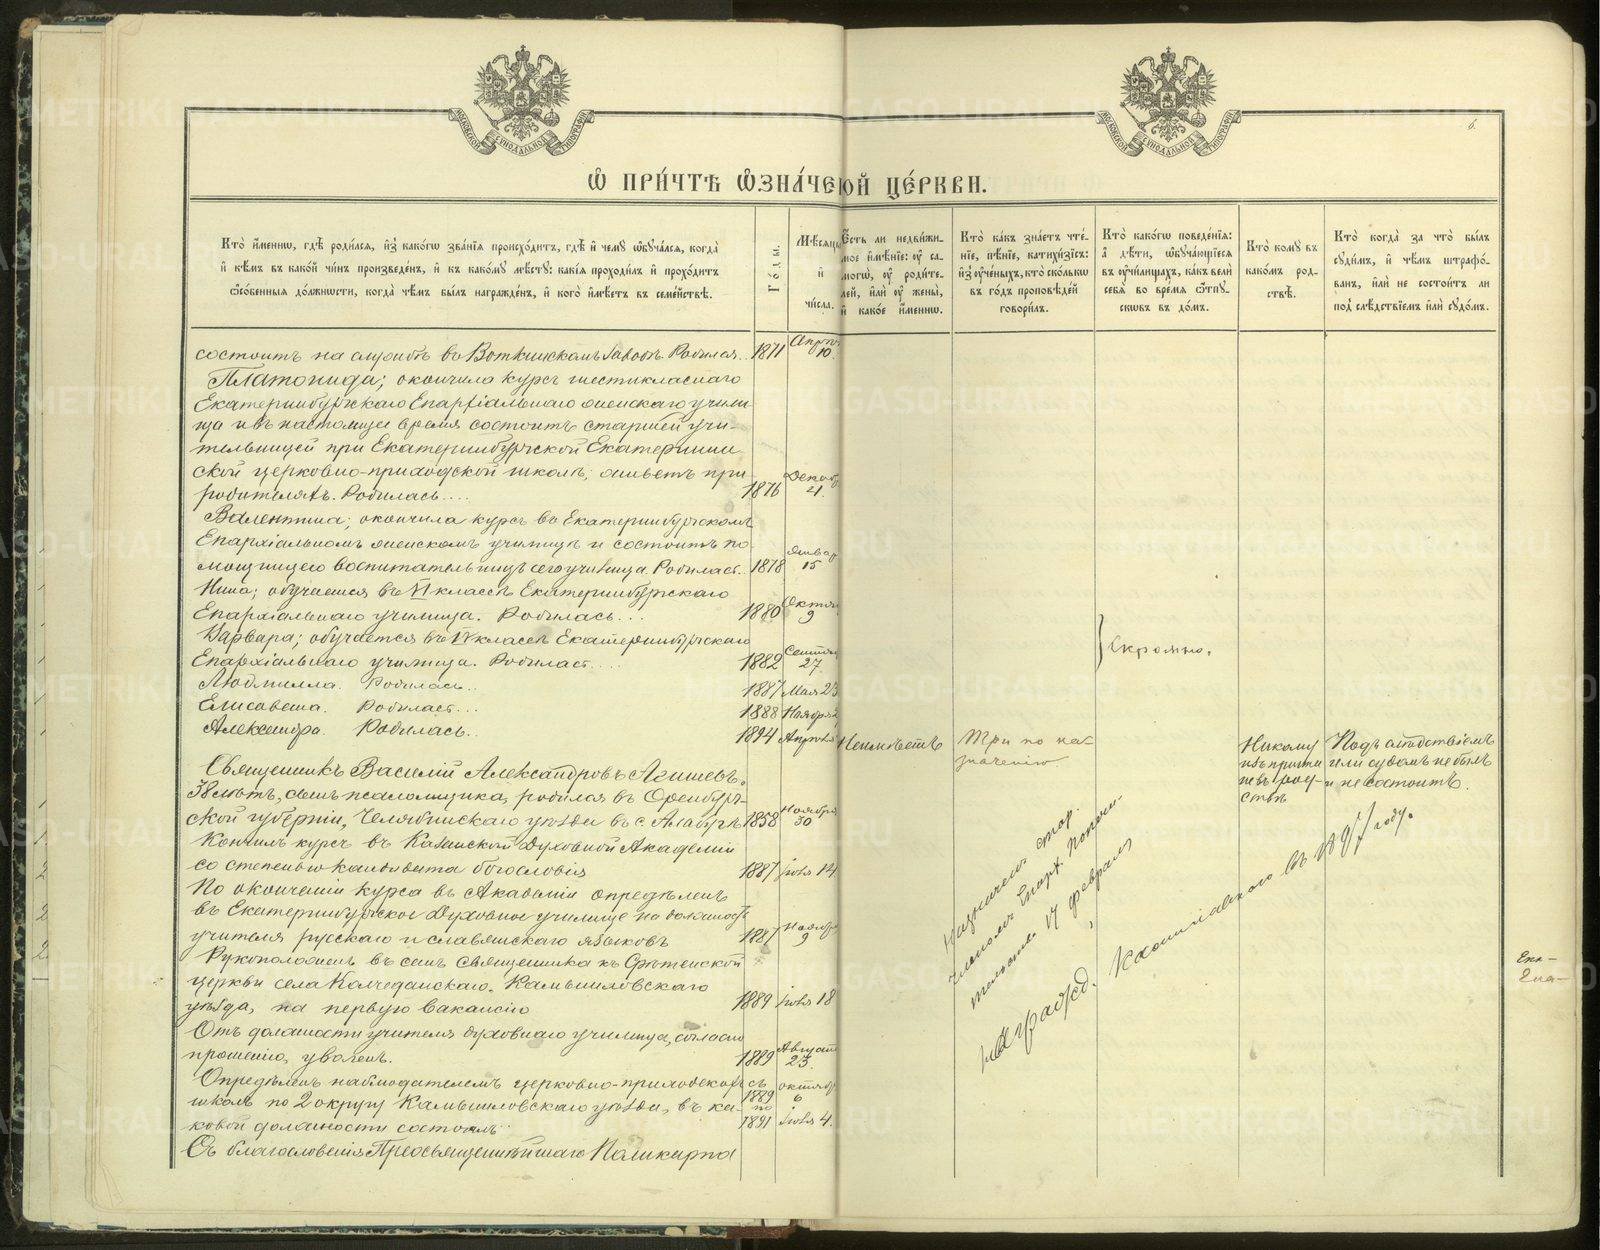 МОСКОВСКОЙ СѴНОДАЛЬНОЙ ТИПОГРАФІИ
МОСКОВСКОЙ СѴНОДАЛЬНОЙ ТИПОГРАФІИ
6.
Ѡ ПРИ́ЧТѢ ѠЗНА́ЧЕ ОЙ ЦЕ́РКВИ.
Кто̀ и҆́менно, гдѣ̀ роди́лсѧ, и҆з̾ како́гѡ зва́нїѧ происхо́дитъ, гдѣ̀ и҆ чемꙋ̀ ѡ҆бꙋча́лсѧ, когда̀
и҆ кѣ́мъ въ како́й чи́нъ произведе́нъ, и҆ къ како́мꙋ мѣ́стꙋ: какі̑ѧ проходи́лъ и҆ прохо́дитъ
ѻ҆со́бенныѧ до́лжности, когда̀ чѣ́мъ бы́лъ награжде́нъ, и҆ кого̀ и҆мѣ́етъ въ семе́йствѣ.
Го́ды.
Мѣ́сѧцы
и҆
чи́сла.
Є҆́сть ли недви́жи-
мое и҆мѣ́нїе: ᲂу҆ са-
могѡ̀, ᲂу҆ роди́те-
лей, и҆лѝ ᲂу҆ жены̀,
и҆ како́е и҆́менно.
Кто̀ ка́къ зна́етъ чте́-
нїе, пѣ́нїе, катихи́зїсъ:
и҆з̾ ᲂу҆че́ныхъ, кто̀ ско́лькѡ
въ го́дъ проповѣ́дей
говори́лъ.
Кто̀ како́гѡ поведе́нїѧ:
а҆ дѣ́ти, ѡ҆бꙋча́ющїесѧ
въ ᲂу҆чи́лищахъ, ка́къ велѝ
себѧ̀ во вре́мѧ ѿпꙋ-
скѡвъ въ до́мъ.
Кто̀ комꙋ̀ въ
како́мъ род-
ствѣ̀.
Кто̀ когда̀ за что̀ бы́лъ
сꙋди́мъ, и҆ чѣ́мъ штрафо́-
ванъ, и҆лѝ не состои́тъ ли
под̾ слѣ́дствїемъ и҆лѝ сꙋдо́мъ.
состоитъ на службѣ въ Воткинскомъ заводѣ. Родился.. 1871 Апрѣ. 10.
Платонида; окончила курсъ шестикласнаго
Екатеринбургскаго Епархіальнаго женскаго учили-
ща и въ настоящее время состоитъ старшей учи-
тельницей при Екатеринбургской Екатеринин
ской церковно-приходской школѣ; живетъ при
родителяхъ. Родилась.... 1876 Декаб. 21.
Валентина; окончила курсъ въ Екатеринбургскомъ
Епархіальномъ женскомъ училищѣ и состоитъ по-
мощницею воспитательницъ сего училища. Родилась.. 1878 Январ 15
Нина; обучается въ VI классѣ Екатеринбургскаго
Епархіальнаго училища. Родилась... 1880 Октяб 9
Варвара; обучается въ IV классѣ Екатеринбургскаго
Епархіальнаго училища. Родилась.... 1882 Сентяб 27
} Скромно.
Людмилла. Родилась.. 1887 Мая 23
Елисавета. Родилась... 1888 Ноября
Александра. Родилась.. 1894 Апрѣля
Неимѣетъ
Три по наз-
наченію
Никому
изъ причта
не въ род-
ствѣ
Подъ слѣдствіемъ
или судомъ не былъ
и не состоитъ.
Священникъ Василій Александровъ Агишевъ,
38 лѣтъ, сынъ псаломщика, родился въ Оренбург-
ской губерніи, Челябинскаго уѣзда въ с. Алабугѣ 1858 Ноября 30
Кончилъ курсъ въ Казанской Духовной Академіи
со степенью кандидата богословія 1887 Іюня 14
По окончаніи курса въ Академіи опредѣленъ
въ Екатеринбургское Духовное училище на должность
учителя русскаго и славянскаго языковъ 1887 Ноября 9
Рукоположенъ въ санъ священника къ Срѣтенской
церкви села Колчеданскаго, Камышловскаго
уѣзда, на первую вакансію 1889 Іюня 18
Отъ должности учителя духовнаго училища, согласно
прошенію, уволенъ. 1889 Август 23.
Опредѣленъ наблюдателемъ церковно-приходскихъ
школъ по 2 округу Камышловскаго уѣзда, въ ка-
ковой должности состоялъ
съ 1889 октяб 6
по 1891 Іюля 4.
Съ благословенія Преосвященнѣйшаго Поликарпа
Назначенъ стор.
членомъ Епарх. попечи-
тельства 17 февраля
Награжд. Камилавкою въ 1897 году.
Ека-